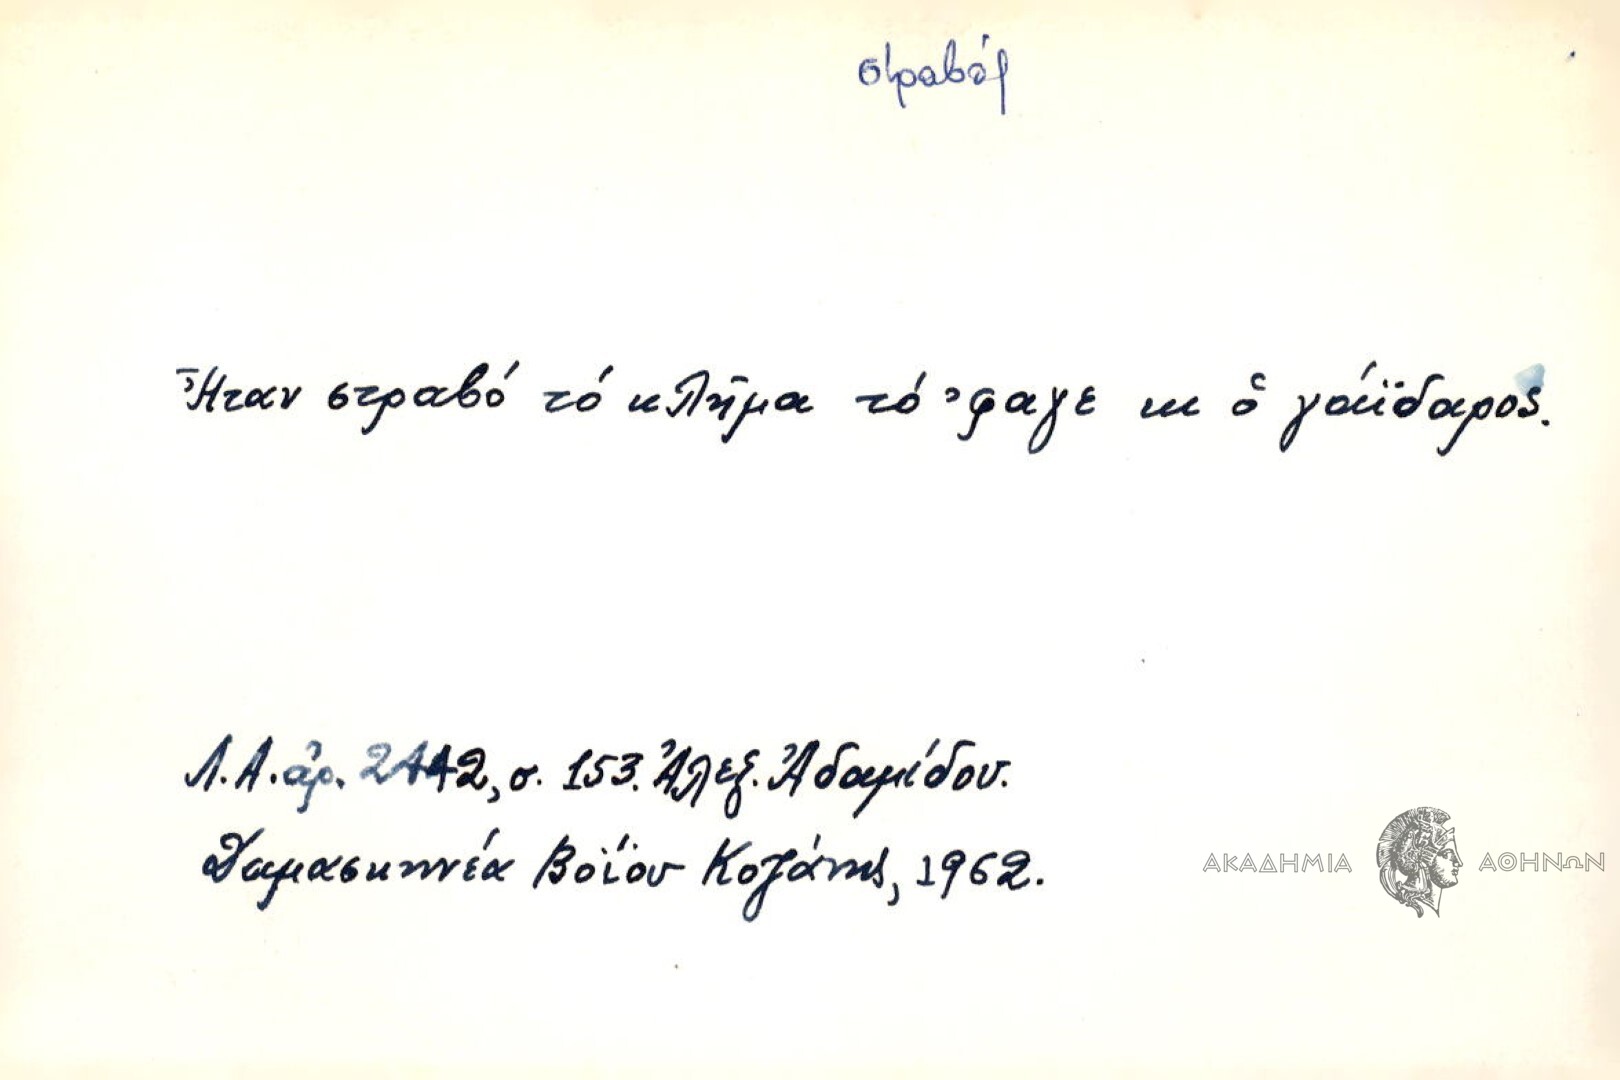 στραβός
Ἦταν στραβό τό κλῆμα τό ᾿φαγε κι ὁ γάϊδαρος.
Λ.Α. ἀρ. 2442, σ. 153. Ἀλεξ. Ἀδαμίδου.
Δαμασκηνέα Βοΐου Κοζάνης, 1962.
ΑΚΑΔΗΜΙΑ ΑΘΗΝΩΝ